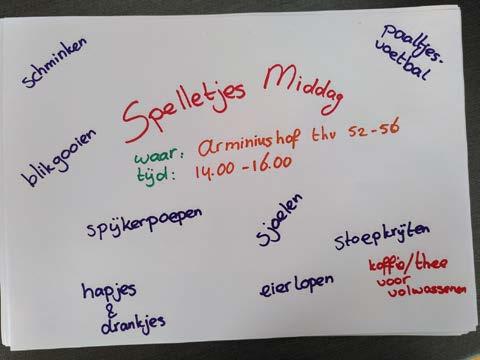 schminken
paaltjes-
voetbal
Spelletjes Middag
blikgooien
waar: Arminiushof thv 52-56
tijd: 14.00-16.00
spijkerpoepen
sjoelen
stoepkrijten
hapjes
&
drankjes
eierlopen
koffie/thee
voor
volwassenen